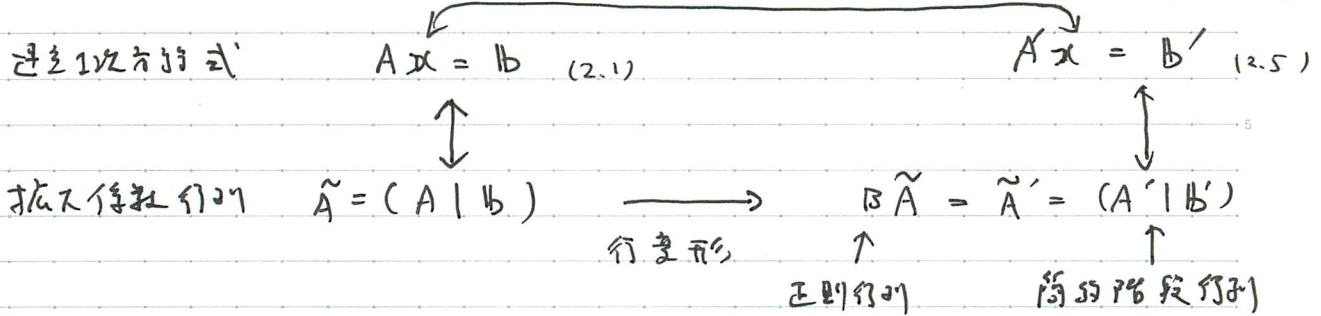 連立1次方程式 Ax = b (2.1) A'x = b' (2.5)
5
拡大係数行列 Ã = (A | b) → BÃ = Ã' = (A' | b')
行変形
正則行列 簡約階段行列